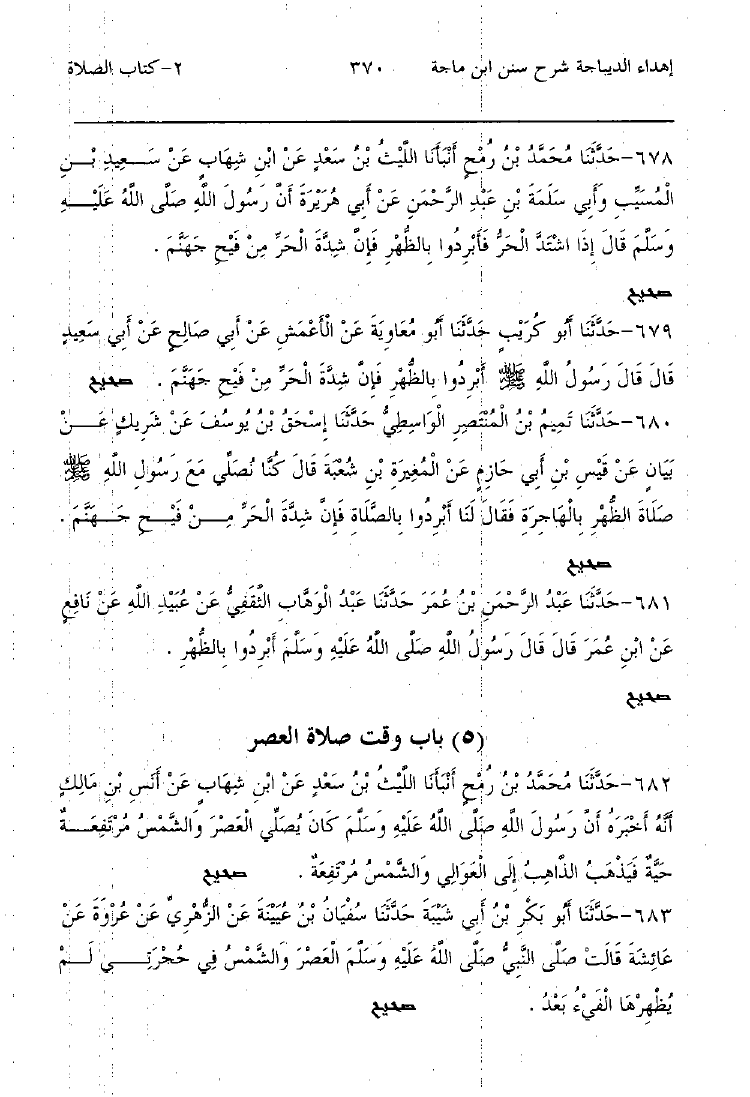 إهداء الديباجة شرح سنن ابن ماجة ٣٧٠ ٢-كتاب الصلاة
٦٧٨-حَدَّثَنَا مُحَمَّدُ بْنُ رُمْحٍ أَنْبَأَنَا اللَّيْثُ بْنُ سَعْدٍ عَنْ ابْنِ شِهَابٍ عَنْ سَعِيدِ بْنِ
الْمُسَيِّبِ وَأَبِي سَلَمَةَ بْنِ عَبْدِ الرَّحْمَنِ عَنْ أَبِي هُرَيْرَةَ أَنَّ رَسُولَ اللَّهِ صَلَّى اللَّهُ عَلَيْهِ
وَسَلَّمَ قَالَ إِذَا اشْتَدَّ الْحَرُّ فَأَبْرِدُوا بِالظُّهْرِ فَإِنَّ شِدَّةَ الْحَرِّ مِنْ فَيْحِ جَهَنَّمَ .
صحيح
٦٧٩-حَدَّثَنَا أَبُو كُرَيْبٍ حَدَّثَنَا أَبُو مُعَاوِيَةَ عَنْ الْأَعْمَشِ عَنْ أَبِي صَالِحٍ عَنْ أَبِي سَعِيدٍ
قَالَ قَالَ رَسُولُ اللَّهِ ﷺ أَبْرِدُوا بِالظُّهْرِ فَإِنَّ شِدَّةَ الْحَرِّ مِنْ فَيْحِ جَهَنَّمَ . صحيح
٦٨٠-حَدَّثَنَا تَمِيمُ بْنُ الْمُنْتَصِرِ الْوَاسِطِيُّ حَدَّثَنَا إِسْحَقُ بْنُ يُوسُفَ عَنْ شَرِيكٍ عَنْ
بَيَانٍ عَنْ قَيْسِ بْنِ أَبِي حَازِمٍ عَنْ الْمُغِيرَةِ بْنِ شُعْبَةَ قَالَ كُنَّا نُصَلِّي مَعَ رَسُولِ اللَّهِ ﷺ
صَلَاةَ الظُّهْرِ بِالْهَاجِرَةِ فَقَالَ لَنَا أَبْرِدُوا بِالصَّلَاةِ فَإِنَّ شِدَّةَ الْحَرِّ مِنْ فَيْحِ جَهَنَّمَ .
صحيح
٦٨١-حَدَّثَنَا عَبْدُ الرَّحْمَنِ بْنُ عُمَرَ حَدَّثَنَا عَبْدُ الْوَهَّابِ الثَّقَفِيُّ عَنْ عُبَيْدِ اللَّهِ عَنْ نَافِعٍ
عَنْ ابْنِ عُمَرَ قَالَ قَالَ رَسُولُ اللَّهِ صَلَّى اللَّهُ عَلَيْهِ وَسَلَّمَ أَبْرِدُوا بِالظُّهْرِ .
صحيح
(٥) باب وقت صلاة العصر
٦٨٢-حَدَّثَنَا مُحَمَّدُ بْنُ رُمْحٍ أَنْبَأَنَا اللَّيْثُ بْنُ سَعْدٍ عَنْ ابْنِ شِهَابٍ عَنْ أَنَسِ بْنِ مَالِكٍ
أَنَّهُ أَخْبَرَهُ أَنَّ رَسُولَ اللَّهِ صَلَّى اللَّهُ عَلَيْهِ وَسَلَّمَ كَانَ يُصَلِّي الْعَصْرَ وَالشَّمْسُ مُرْتَفِعَةٌ
حَيَّةٌ فَيَذْهَبُ الذَّاهِبُ إِلَى الْعَوَالِي وَالشَّمْسُ مُرْتَفِعَةٌ . صحيح
٦٨٣-حَدَّثَنَا أَبُو بَكْرِ بْنُ أَبِي شَيْبَةَ حَدَّثَنَا سُفْيَانُ بْنُ عُيَيْنَةَ عَنْ الزُّهْرِيِّ عَنْ عُرْوَةَ عَنْ
عَائِشَةَ قَالَتْ صَلَّى النَّبِيُّ صَلَّى اللَّهُ عَلَيْهِ وَسَلَّمَ الْعَصْرَ وَالشَّمْسُ فِي حُجْرَتِي لَمْ
يُظْهِرْهَا الْفَيْءُ بَعْدُ . صحيح